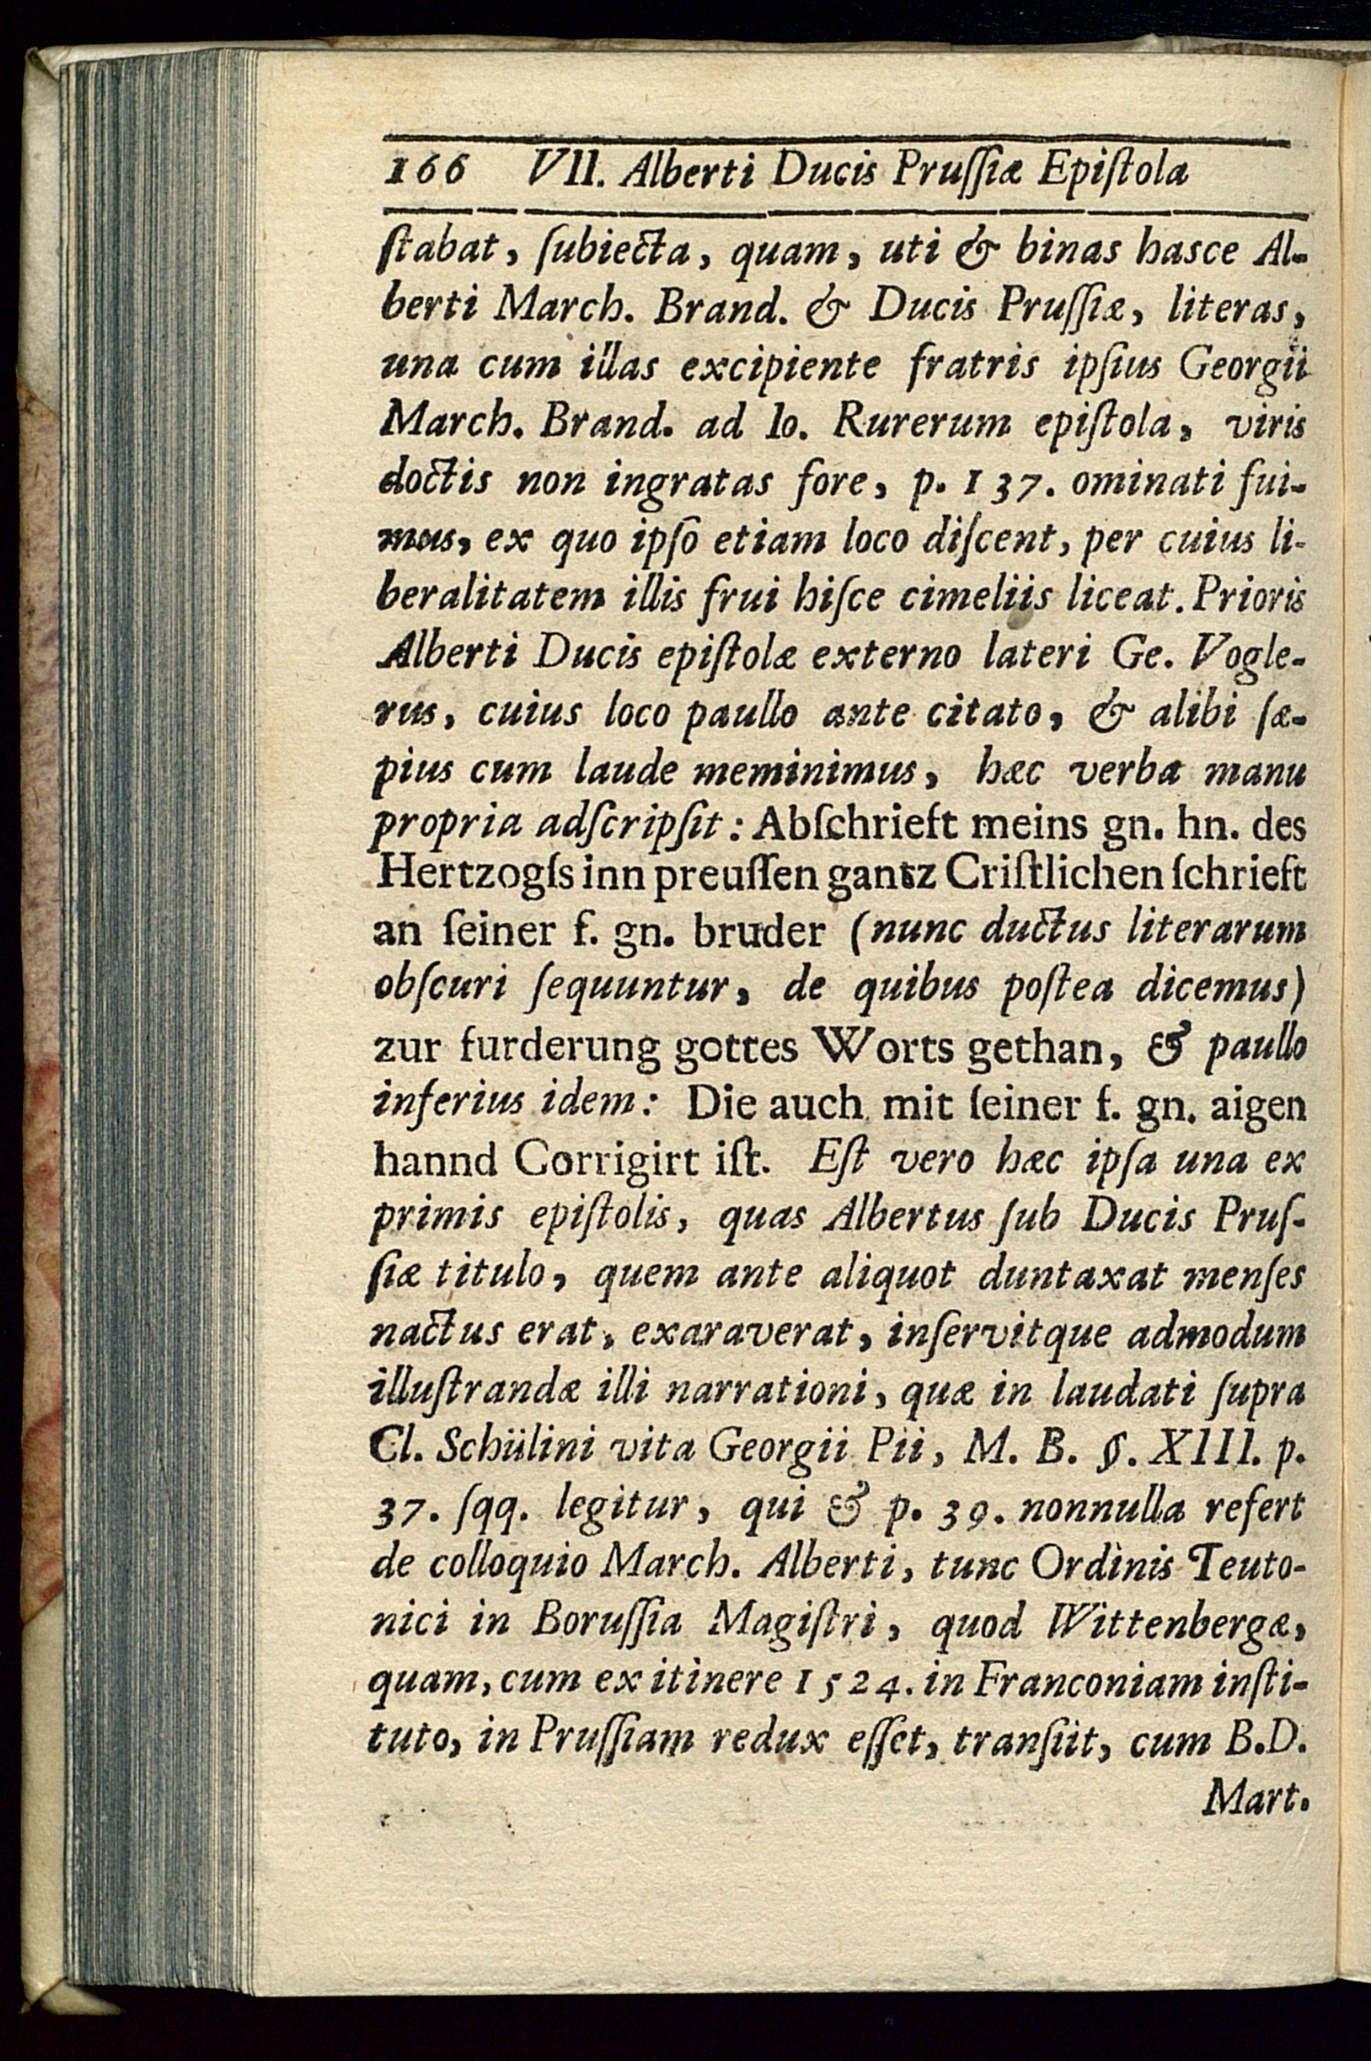 166 VII. Alberti Ducis Pruſſiæ Epiſtola
ſtabat, ſubiecta, quam, uti & binas hasce Al-
berti March. Brand. & Ducis Pruſſiæ, literas,
una cum illas excipiente fratris ipſius Georgii
March. Brand. ad Io. Rurerum epiſtola, viris
doctis non ingratas fore, p. 137. ominati fui-
mus, ex quo ipſo etiam loco diſcent, per cuius li-
beralitatem illis frui hiſce cimeliis liceat. Prioris
Alberti Ducis epiſtolæ externo lateri Ge. Vogle-
rus, cuius loco paullo ante citato, & alibi ſæ-
pius cum laude meminimus, hæc verba manu
propria adſcripſit: Abſchrieft meins gn. hn. des
Hertzogſs inn preuſſen gantz Criſtlichen ſchrieft
an ſeiner f. gn. bruder (nunc ductus literarum
obſcuri ſequuntur, de quibus poſtea dicemus)
zur furderung gottes Worts gethan, & paullo
inferius idem: Die auch mit ſeiner f. gn. aigen
hannd Corrigirt iſt. Eſt vero hæc ipſa una ex
primis epiſtolis, quas Albertus ſub Ducis Pruſ-
ſiæ titulo, quem ante aliquot duntaxat menſes
nactus erat, exaraverat, inſervitque admodum
illuſtrandæ illi narrationi, quæ in laudati ſupra
Cl. Schülini vita Georgii Pii, M. B. §. XIII. p.
37. ſqq. legitur, qui & p. 39. nonnulla refert
de colloquio March. Alberti, tunc Ordinis Teuto-
nici in Boruſſia Magiſtri, quod Wittenbergæ,
quam, cum ex itinere 1524. in Franconiam inſti-
tuto, in Pruſſiam redux eſſet, tranſiit, cum B.D.
Mart.